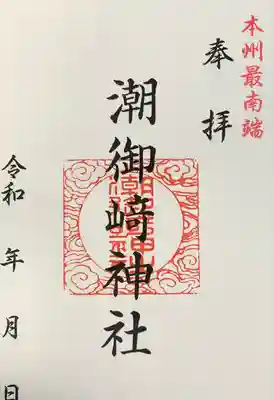 本州最南端
奉拝
潮御崎神社
令和 年 月 日